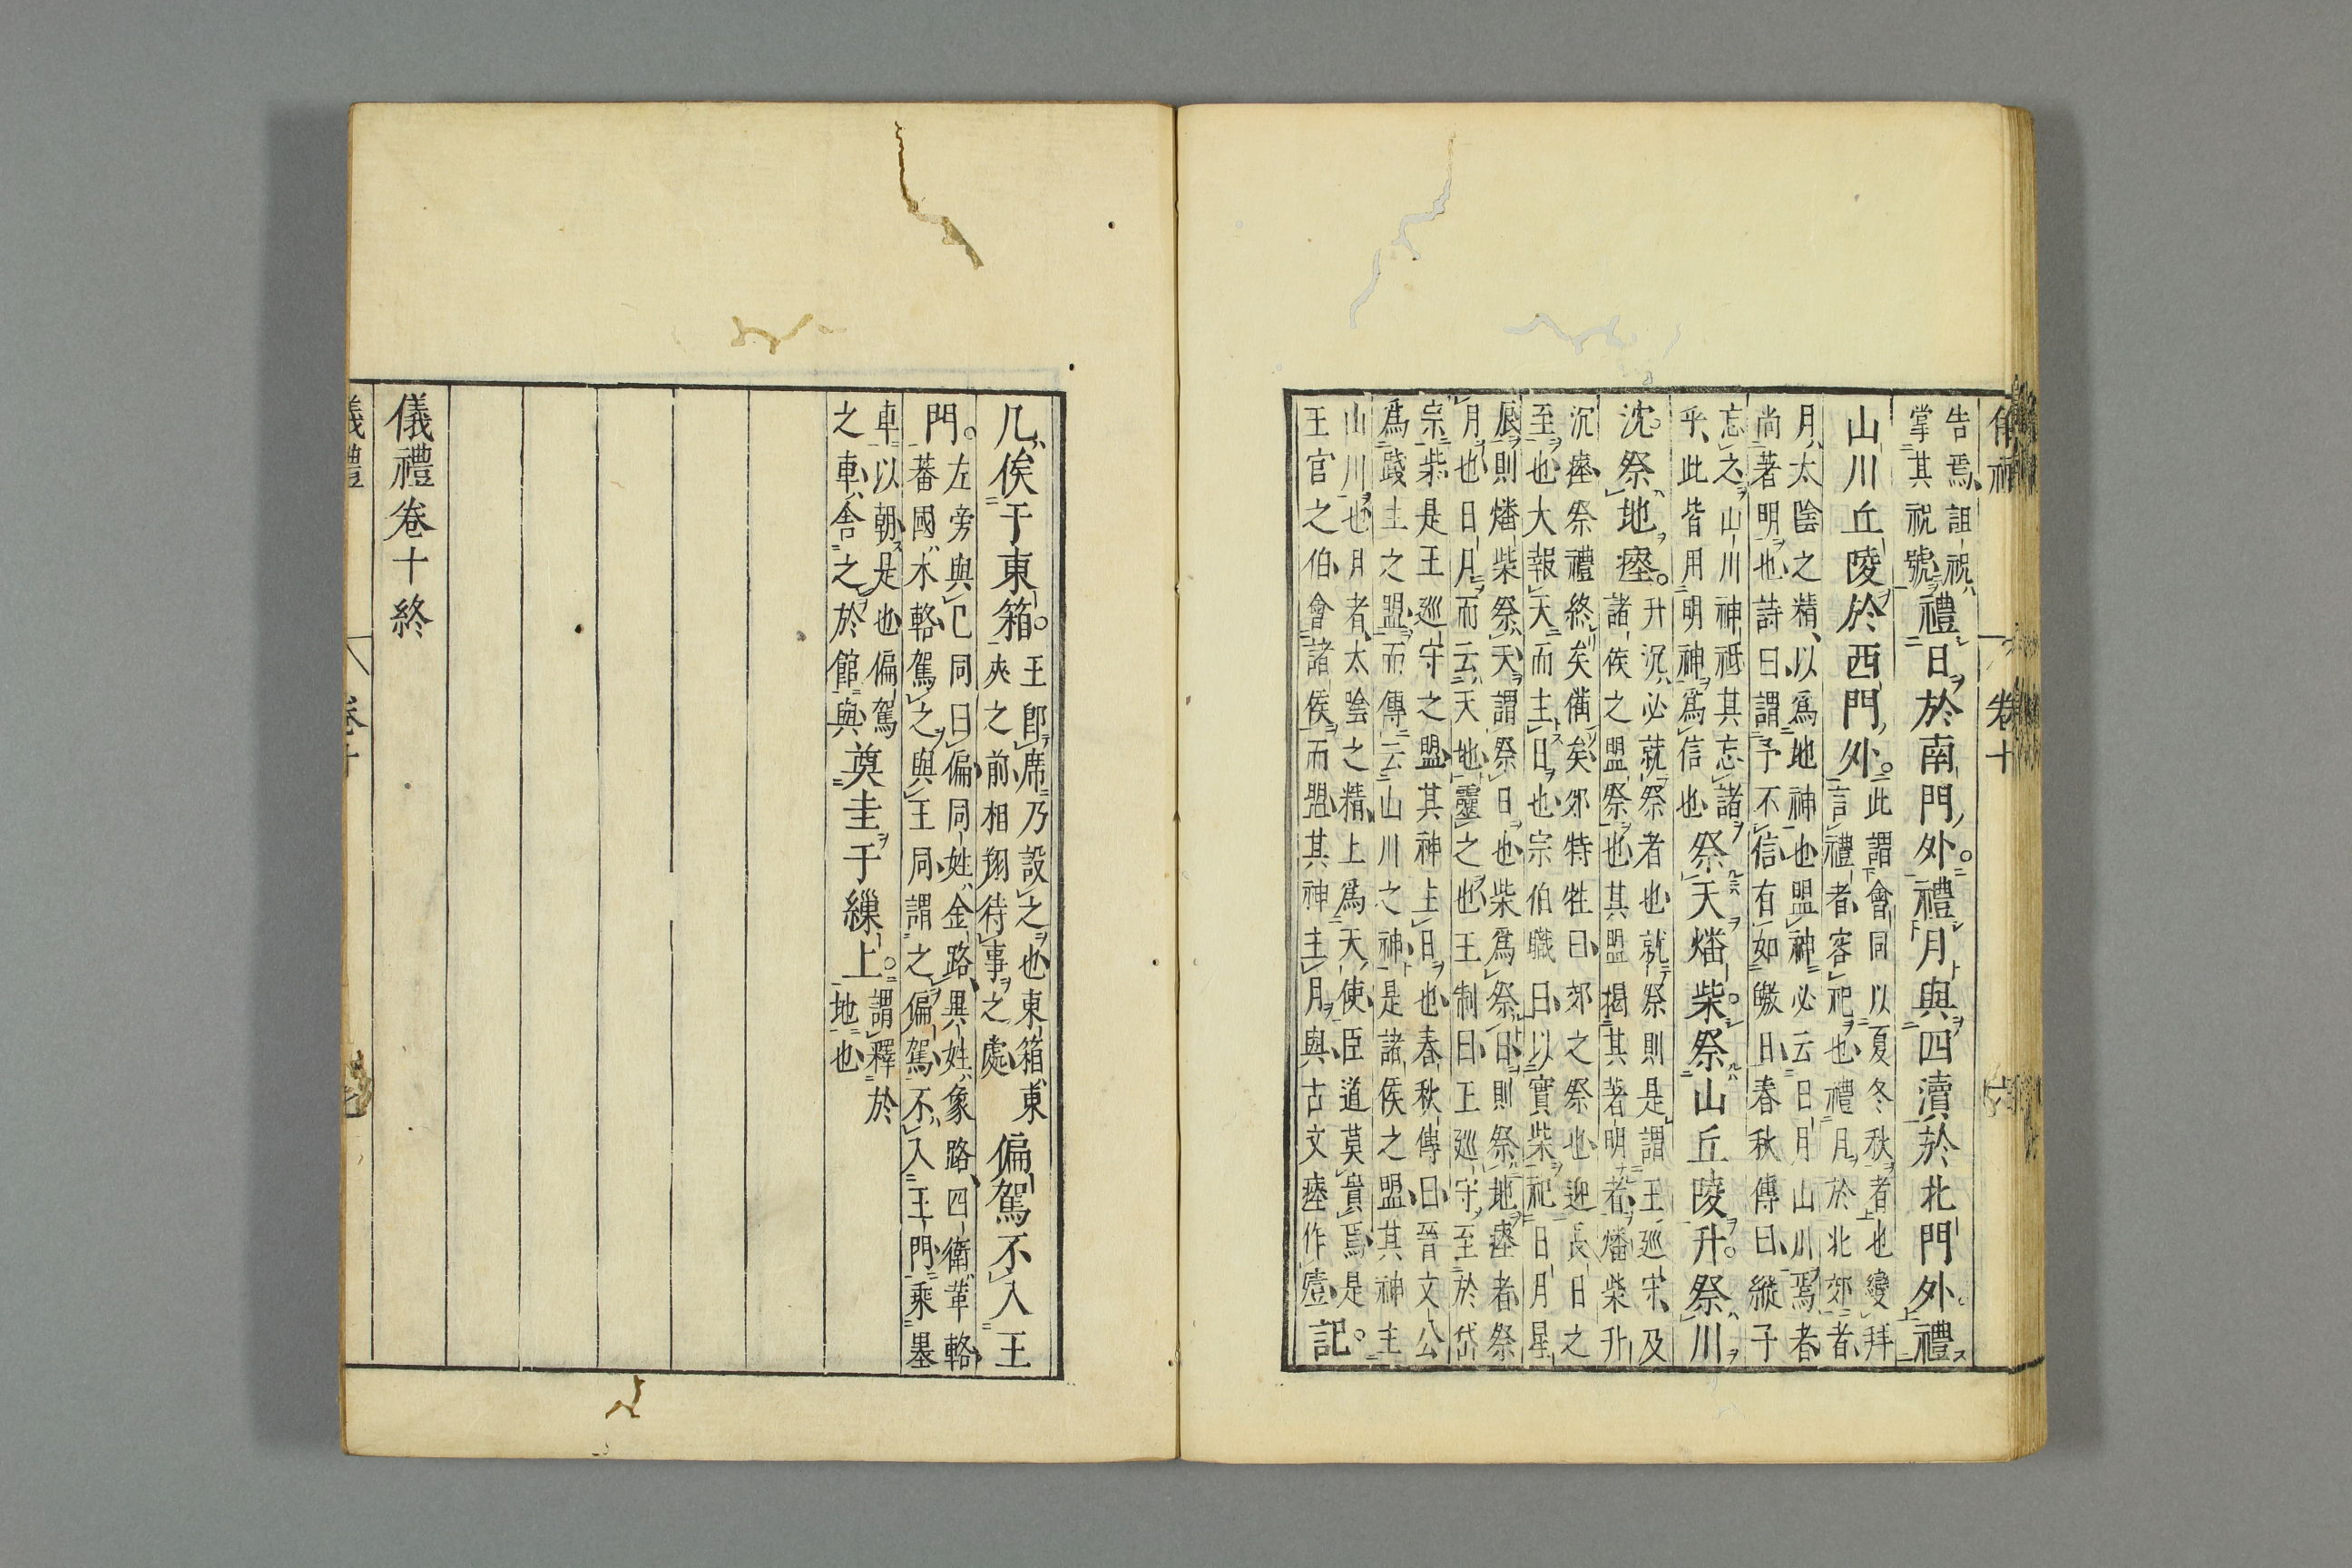 儀禮 卷十
告焉詛祝
掌其祝號
禮日於南門外禮月與四瀆於北門外禮
山川丘陵於西門外
此謂會同以夏冬秋者也變拜
言禮者容祀也禮月於北郊者
月太陰之精以爲地神也盟神必云日月山川焉者
尚著明也詩曰謂予不信有如皦日春秋傳曰縱子
忘之山川神祇其忘諸
乎此皆用明神爲信也
祭天燔柴祭山丘陵升祭川
沈祭地瘞
升沉必就祭者也就祭則是謂王巡守及
諸侯之盟祭也其盟揭其著明者燔柴升
沉瘞祭禮終矣備矣郊特牲曰郊之祭也迎長日之
至也大報天而主日也宗伯職曰以實柴祀日月星
辰則燔柴祭天謂祭日也柴爲祭日則祭地瘞者祭
月也日月而云天地靈之也王制曰王巡守至於岱
宗柴是王巡守之盟其神主日也春秋傳曰晉文公
爲踐土之盟而傳云山川之神是諸侯之盟其神主
山川也月者太陰之精上爲天使臣道莫貴焉是
王官之伯會諸侯而盟其神主月與古文瘞作壹
記
几俟于東箱
王卽席乃設之也東箱東
夾之前相翔待事之處
偏駕不入王
門
左旁與己同曰偏同姓金路異姓象路四衛革輅
蕃國木輅駕之與王同謂之偏駕不入王門乘墨
車以朝是也偏駕
之車舍之於館與
奠圭于繅上
謂釋於
地也
儀禮卷十終
儀禮 卷十